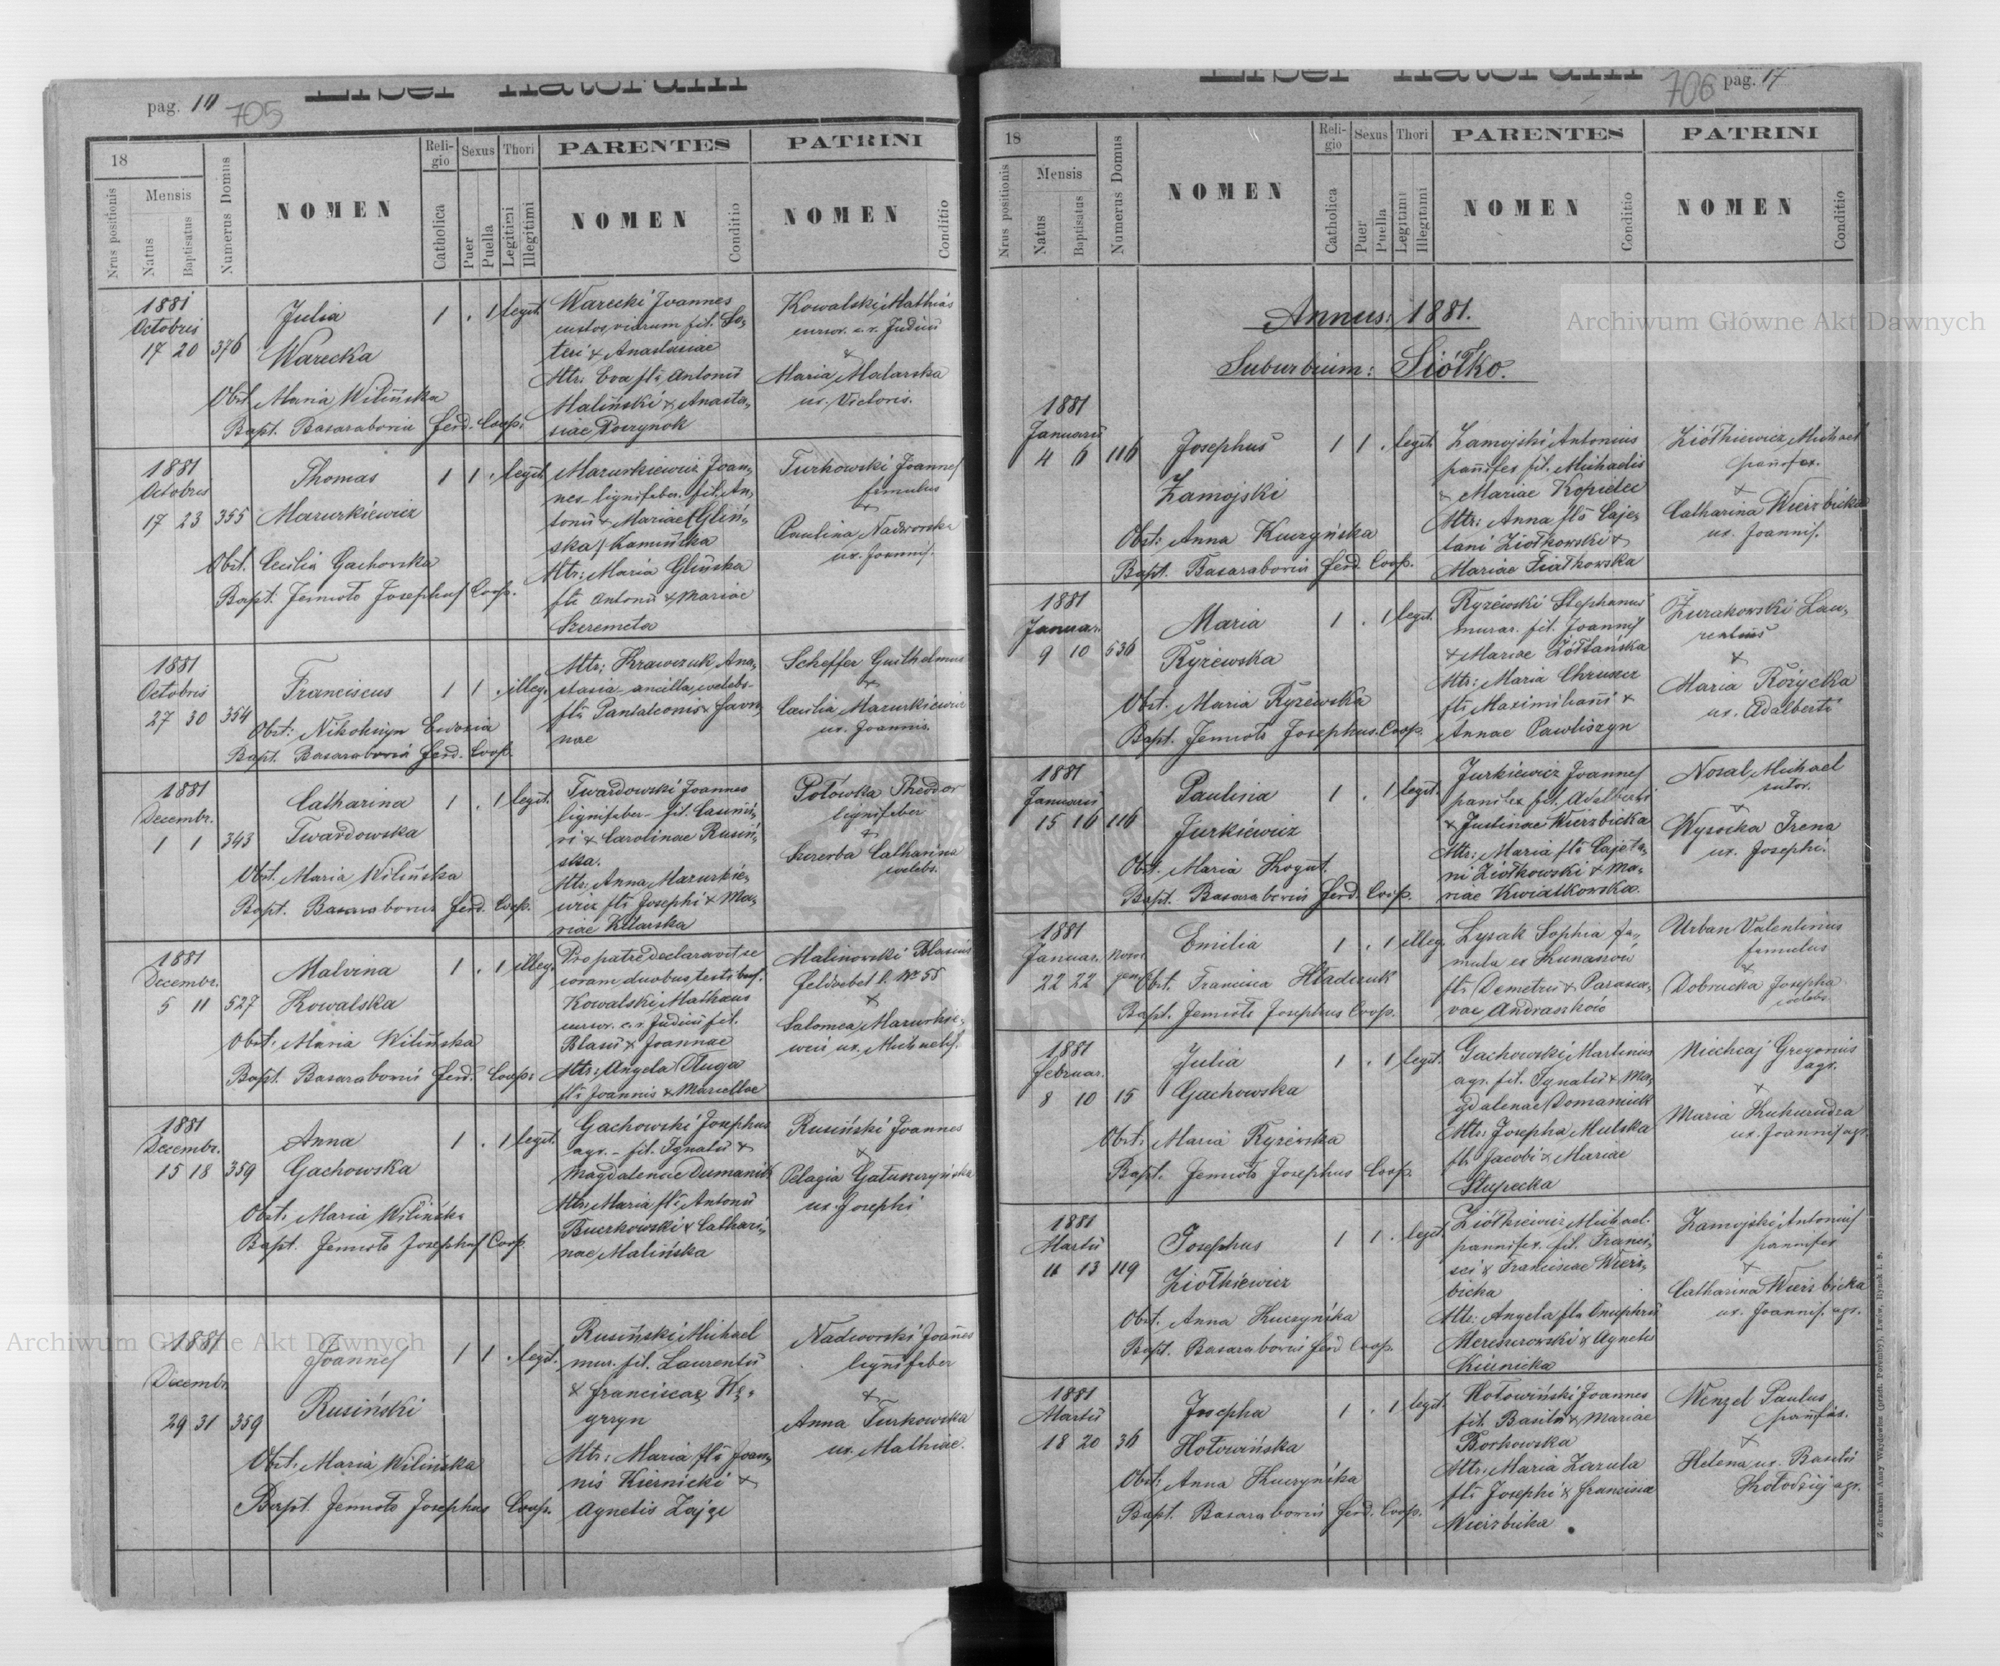 Liber natorum
pag. 10
705
18
Nrus positionis
Mensis
Natus
Baptisatus
Numerus Domus
NOMEN
Religio
Catholica
Sexus
Puer
Puella
Thori
Legitimi
Illegitimi
PARENTES
NOMEN
Conditio
PATRINI
NOMEN
Conditio
1881
Octobris
17 20 376
Julia
Warecka
1 . 1 legit.
Obst. Maria Wilińska
Bapt. Basaraborius Ferd. Coop.
Warecki Joannes
custos viarum fil.
& Anastasiae
Mtr: Eva fla Antonii
Maliński & Anasta-
siae Poczynok
Kowalski Mathias
cursor. c. r. Judicii
&
Maria Matarska
ux. Victoris.
1881
Octobris
17 23 355
Thomas
Mazurkiewicz
1 1 . legit.
Obst. Cecilia Gachowska
Bapt. Jemioło Josephus Coop.
Mazurkiewicz Joan-
nes lignifaber. fil. An-
tonii & Mariae (Gliń-
ska) Kamińska
Mtr: Maria Glińska
fla Antonii & Mariae
Szeremeta
Turkowski Joannes
famulus
&
Paulina Nadworska
ux. Joannis.
1881
Octobris
27 30 354
Franciscus
1 1 . illeg.
Obst: Nikohryn Ewdosia
Bapt. Basaraborius Ferd. Coop.
Mtr: Krawczuk Ana-
stasia ancilla, coelebs
fla Pantaleonis &
nae
Scheffer Guilhelmus
&
Cecilia Mazurkiewicz
ux. Joannis.
1881
Decembr.
1 1 343
Catharina
Twardowska
1 . 1 legit.
Obst. Maria Wilińska
Bapt. Basaraborius Ferd. Coop.
Twardowski Joannes
lignifaber fil. Casimi-
ri & Carolinae Rusiń-
ska.
Mtr: Anna Mazurkie-
wicz fla Josephi & Ma-
riae Kitarska
Połowka Theodor
lignifaber
&
Szczerba Catharina
coelebs.
1881
Decembr.
5 11 527
Malvina
Kowalska
1 . 1 illeg.
Obst: Maria Wilińska
Bapt. Basaraborius Ferd. Coop:
Pro patre declaravit se
coram duobus testibus.
Kowalski Mathaus
cursor. c. r. Judicii fil.
Blasii & Joannae
Mtr: Angela Sługa
fla Joannis & Marcellae
Malinowski Blasius
Feldwebel l. No 55
&
Salomea Mazurkie-
wicz ux. Michaelis.
1881
Decembr.
15 18 359
Anna
Gachowska
1 . 1 legit.
Obst: Maria Wilińska
Bapt. Jemioło Josephus Coop.
Gachowski Josephus
agr. - fil. Ignatii &
Magdalenae Dumanik
Mtr: Maria fla Antonii
Buczkowski & Cathari-
nae Malińska
Rusiński Joannes
&
Pelagia Gałuszczyńska
ux. Josephi
1881
Decembr.
29 31 359
Joannes
Rusiński
1 1 . legit.
Obst: Maria Wilińska
Bapt. Jemioło Josephus Coop.
Rusiński Michael
mur. fil. Laurentii
& Franciscae Wę-
grzyn
Mtr: Maria fla Joan-
nis Kiernicki &
Agnetis Zając
Nadworski Joannes
lignifaber
&
Anna Turkowska
ux. Mathiae.
Archiwum Główne Akt Dawnych
Liber natorum
706
pag. 17
18
Nrus positionis
Mensis
Natus
Baptisatus
Numerus Domus
NOMEN
Religio
Catholica
Sexus
Puer
Puella
Thori
Legitimi
Illegitimi
PARENTES
NOMEN
Conditio
PATRINI
NOMEN
Conditio
Annus: 1881.
Suburbium: Siółko.
Archiwum Główne Akt Dawnych
1881
Januarii
4 6 116
Josephus
Zamojski
1 1 . legit.
Obst: Anna Kuczyńska
Bapt. Basaraborius Ferd. Coop.
Zamojski Antonius
pannifex fil. Michaelis
& Mariae Kopielec
Mtr: Anna fla Caje-
tani Ziołkowski &
Mariae Fiałkowska
Ziółkiewicz Michael
pannifex.
&
Catharina Wierzbicka
ux. Joannis.
1881
Januar.
9 10 536
Maria
Ryżewska
1 . 1 legit.
Obst. Maria Ryżewska
Bapt. Jemioło Josephus. Coop.
Ryżewski Stephanus
murar. fil. Joannis
& Mariae Żółtańska
Mtr: Maria Chruszcz
fla Maximiliani &
Annae Pawliszyn
Żurakowski Lau-
rentius
&
Maria Rożycka
ux. Adalberti
1881
Januarii
15 16 116
Paulina
Jurkiewicz
1 . 1 legit.
Obst. Maria Kogut.
Bapt. Basaraborius Ferd. Coop.
Jurkiewicz Joannes
panifex fil. Adalberti
& Justinae Wierzbicka
Mtr: Maria fla Cajeta-
ni Ziółkowski & Ma-
riae Kwiatkowska.
Nosal Michael
sutor.
&
Wysocka Irena
ux. Josephi.
1881
Januar.
22 22
Emilia
1 . 1 illeg.
Obst. Francisca Hładczuk
Bapt. Jemioło Josephus Coop.
Lysak Sophia fa-
mula ex Kunaszów
fla Demetrii & Parasce-
vae Andraszków
Urban Valentinus
famulus
&
Dobrucka Josepha
coelebs.
1881
Februar.
8 10 15
Julia
Gachowska
1 . 1 legit.
Obst: Maria Ryżewska
Bapt. Jemioło Josephus Coop.
Gachowski Martinus
agr. fil. Ignatii & Ma-
gdalenae Domanick
Mtr: Josepha Mulska
fla Jacobi & Mariae
Słupecka
Niechcaj Gregorius
agr.
&
Maria Kukurudza
ux. Joannis agr.
1881
Martii
11 13 119
Josephus
Ziółkiewicz
1 1 . legit.
Obst. Anna Kuczyńska
Bapt. Basaraborius Ferd Coop.
Ziółkiewicz Michael.
pannifex. fil. Franci-
sci & Franciscae Wierz-
bicka
Mtr: Angela fla Onuphrii
Mereszczowski & Agnetis
Kiernicka
Zamojski Antonius
pannifex
&
Catharina Wierzbicka
ux. Joannis. agr.
1881
Martii
18 20 36
Josepha
Hołowińska
1 . 1 legit.
Obst: Anna Kuczyńska
Bapt. Basaraborius Ferd. Coop.
Hołowiński Joannes
fil. Basilii & Mariae
Borkowska
Mtr: Maria Zazula
fla Josephi & Francisca
Wierzbicka
Wenzel Paulus
&
Helena ux. Basilii
Kołodzij agr.
Z drukarni Anny Wajdowicz (przedt. Poremby), Lwów, Rynek l. 9.